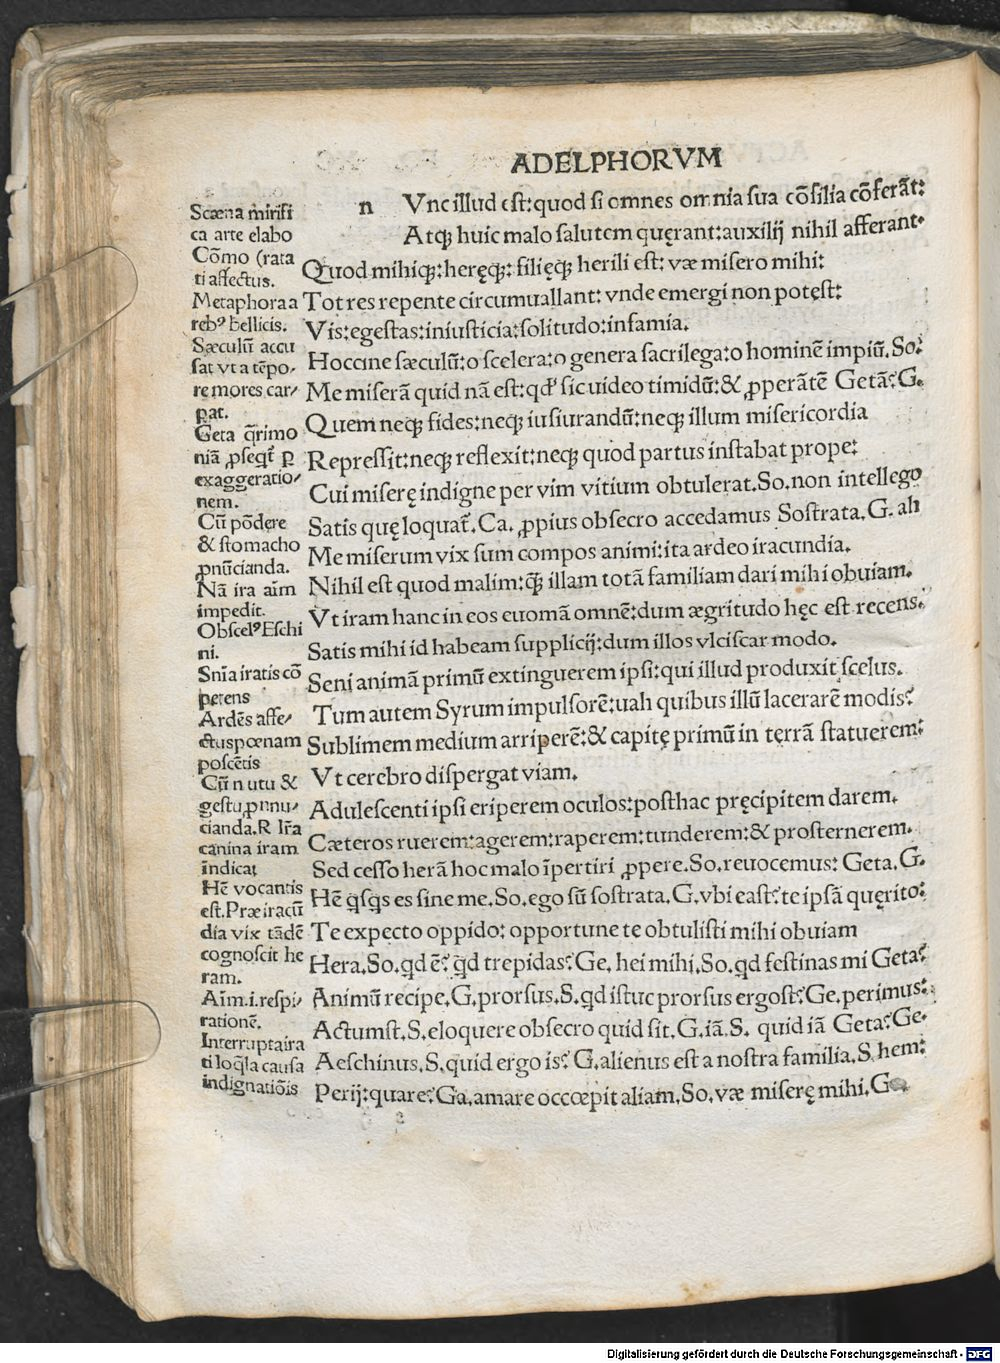 ADELPHORVM
Scæna mirifi
ca arte elabo
Cõmo (rata
ti affectus.
Metaphora a
rebꝰ bellicis.
Sæculũ accu
sat vt a tẽpo⸗
re mores car⸗
pat.
Geta q̃rimo
niã ꝓseqt̃ ꝑ
exaggeratio⸗
nem.
Cũ põdere
& stomacho
ꝓnũcianda.
Nã ira aĩm
impedit.
Obscelꝰ Eschi
ni.
Snĩa iratis cõ
petens
Ardẽs affe⸗
ctus pœnam
poscẽtis
Cũ nutu &
gestu ꝓnnu⸗
cianda. R lr̃a
canina iram
ĩndicat
Hẽ vocantis
est. Præ iracũ
dia vix tãdẽ
cognoscit he
ram.
Aĩm .i. respi⸗
rationẽ.
Interrupta ira
ti loq̃la causa
indignatiõis
n Vnc illud est: quod si omnes omnia sua cõsilia cõferãt:
Atqꝫ huic malo salutem quęrant: auxilij nihil afferant.
Quod mihiqꝫ: heręqꝫ: filięqꝫ herili est: væ misero mihi:
Tot res repente circumuallant: vnde emergi non potęst:
Vis: egestas: iniusticia: solitudo: infamia.
Hoccine sæculũ: o scelera: o genera sacrilega: o hominẽ impiũ. So:
Me miserã quid nã est: qđ sic uideo timidũ: & ꝓperãtẽ Getã? G.
Quem neqꝫ fides: neqꝫ iusiurandũ: neqꝫ illum misericordia
Repressit: neqꝫ reflexit: neqꝫ quod partus instabat prope:
Cui miserę indigne per vim vitium obtulerat. So. non intellego
Satis quę loquat̃. Ca. ꝓpius obsecro accedamus Sostrata. G. ah
Me miserum vix sum compos animi: ita ardeo iracundia.
Nihil est quod malim: q̃ꝫ illam totã familiam dari mihi obuiam.
Vt iram hanc in eos euomã omnẽ: dum ægritudo hęc est recens.
Satis mihi id habeam supplicij: dum illos vlciscar modo.
Seni animã primũ extinguerem ipsi: qui illud produxit scelus.
Tum autem Syrum impulsorẽ: uah quibus illũ lacerarẽ modis?
Sublimem medium arriperẽ: & capitę primũ in tęrrã statuerem:
Vt cerebro dispergat viam.
Adulescenti ipsi eriperem oculos: posthac pręcipitem darem.
Cæteros ruerem: agerem: raperem: tunderem: & prosternerem.
Sed cesso herã hoc malo ĩpertiri ꝓpere. So. reuocemus: Geta. G.
Hẽ q̃sq̃s es sine me. So. ego sũ sostrata. G. vbi east? te ipsã quęrito:
Te expecto oppido: opportune te obtulisti mihi obuiam
Hera. So. qd ẽ? q̃d trepidas? Ge. hei mihi. So. qd festinas mi Geta?
Animũ recipe. G. prorsus. S. qd istuc prorsus ergost? Ge. perimus:
Actumst. S. eloquere obsecro quid sit. G. iã. S. quid iã Geta? Ge.
Aeschinus. S. quid ergo is? G. alienus est a nostra familia. S. hem:
Perij: quare? Ga. amare occœpit aliam. So. væ miserę mihi. G
Digitalisierung gefördert durch die Deutsche Forschungsgemeinschaft - DFG